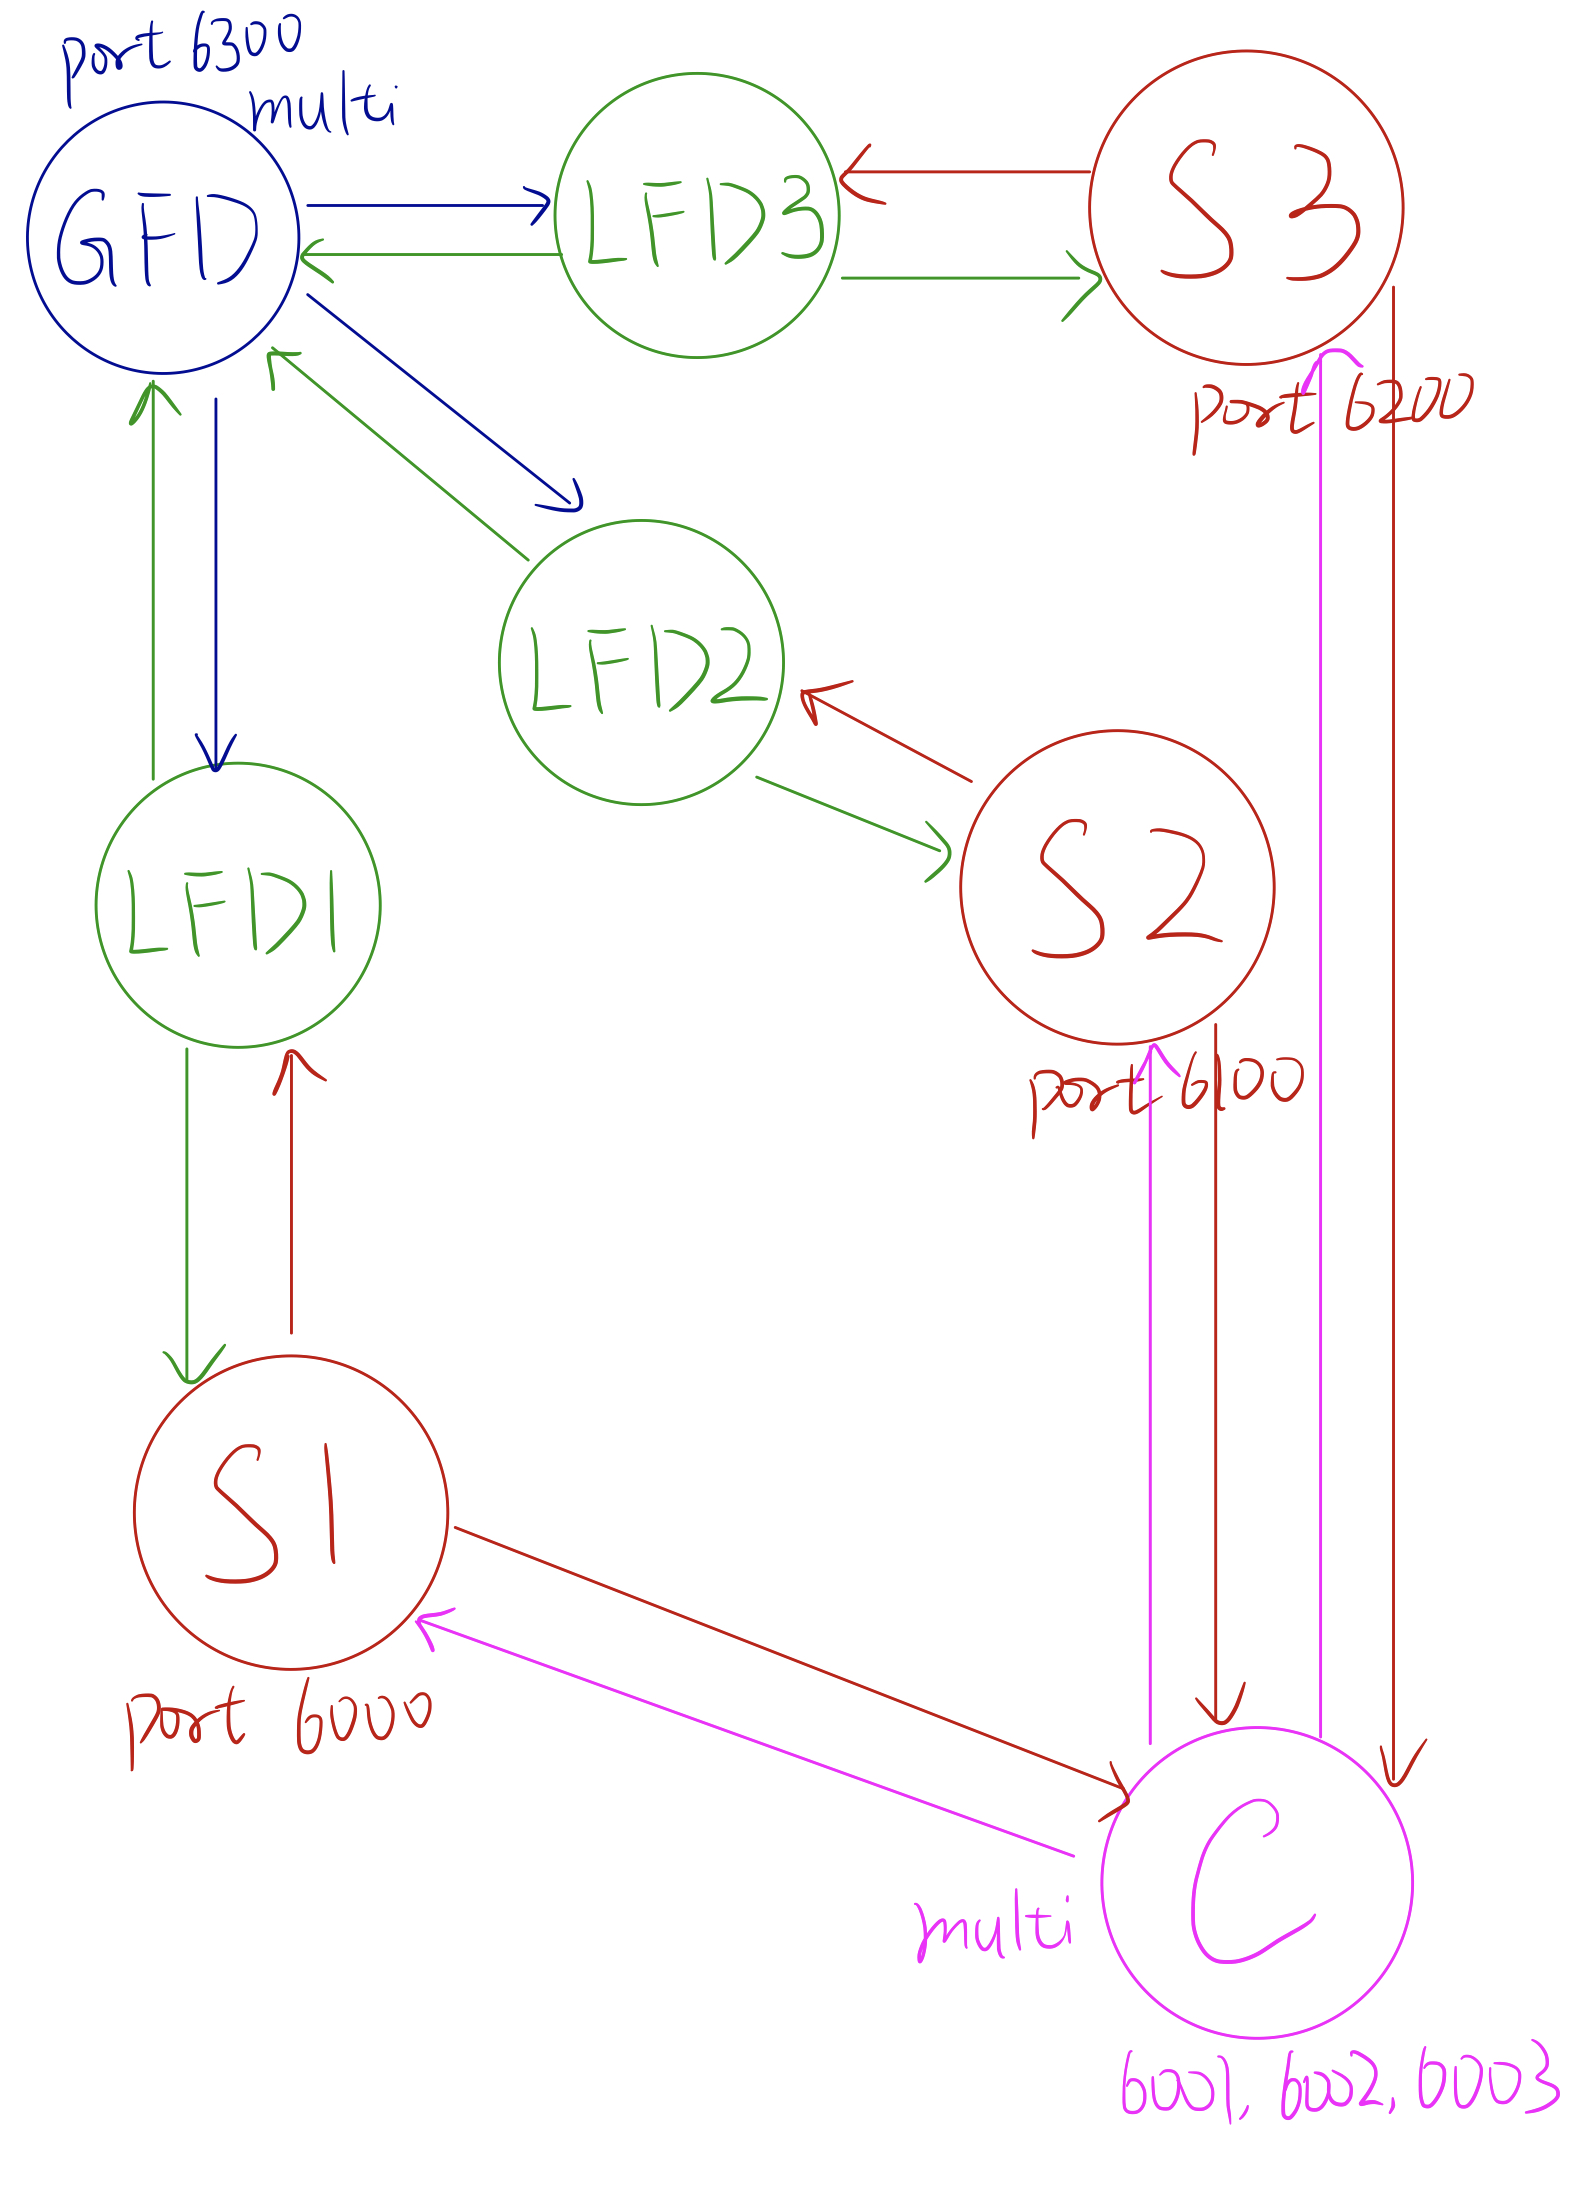 port 6300
multi
GFD
LFD3
S3
port 6200
LFD2
S2
port 6100
LFD1
S1
port 6000
C
multi
6001, 6002, 6003